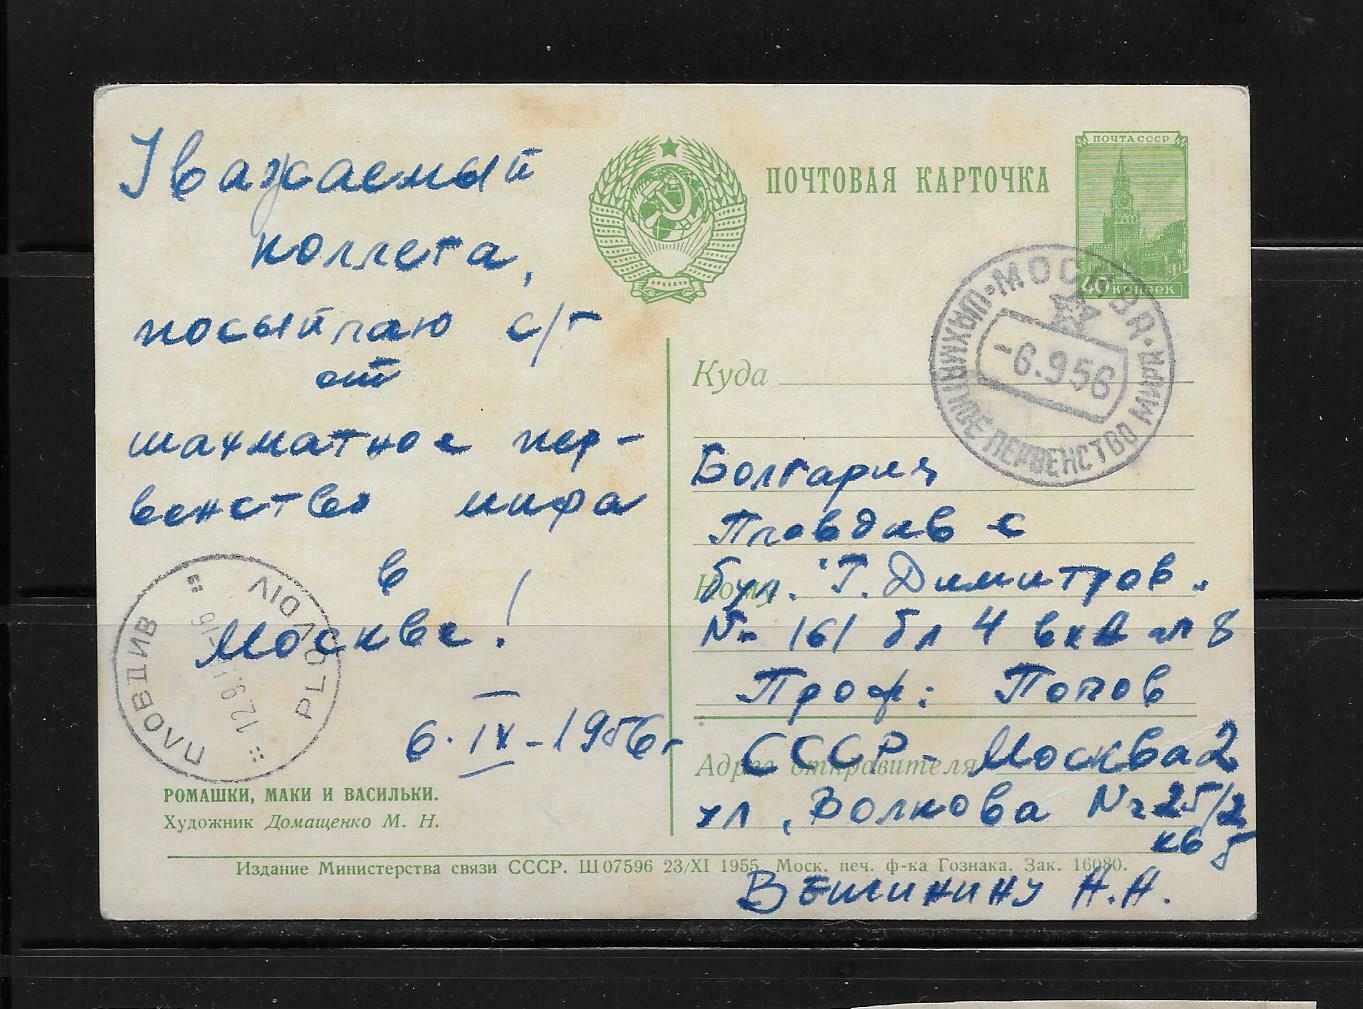 Уважаемый
коллега,
посылаю с/г
от
шахматное пер-
венство мира
в
Москве!
6.IX-1956г
ПЛОВДИВ PLOVDIV
12.9.
РОМАШКИ, МАКИ И ВАСИЛЬКИ.
Художник Домащенко М. Н.
ПОЧТОВАЯ КАРТОЧКА
ПОЧТА СССР
40 КОПЕЕК
МОСКВА
-6.956
ШАХМАТНОЕ ПЕРВЕНСТВО МИРА
Куда
Болгария
Пловдив с
Кому
бул. "Г. Димитров"
№ 161 бл 4 вхА ап 8
Проф: Попов
Адрес отправителя
СССР - Москва 2
ул. Волкова № 25/2
кв 5
Вешинину А.А.
Издание Министерства связи СССР. Ш 07596 23/XI 1955. Моск. печ. ф-ка Гознака. Зак. 16080.